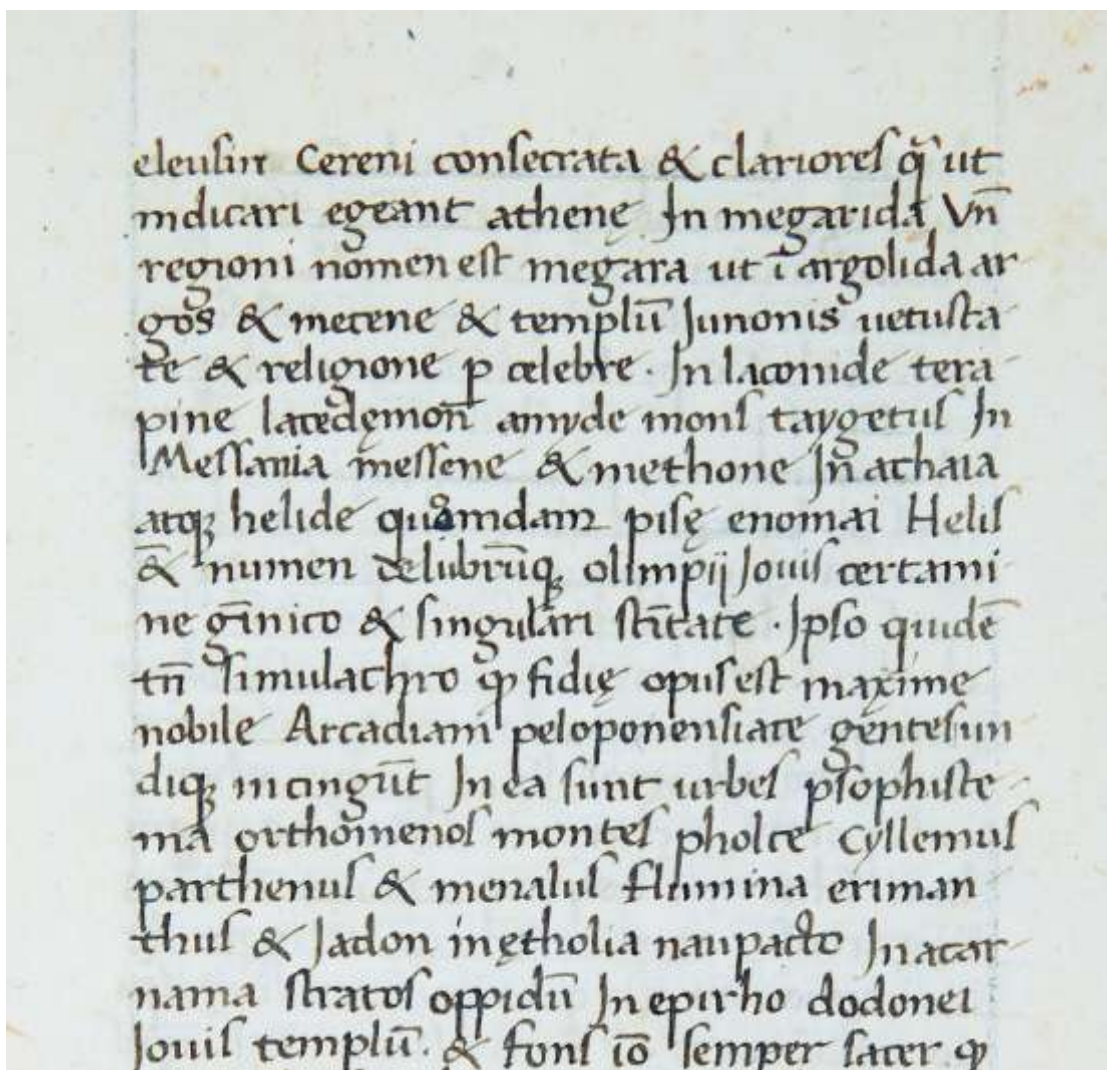 eleusin Cereni consecrata & clariores q̃ ut
indicari egeant athenę In megarida Vn̄
regioni nomen est megara ut ī argolida ar
gos & mecene & templū Junonis uetusta
te & religione p celebre · In laconide tera
pine lacedęmon̄ amyde mons taygetus In
Messania messene & methone In achaia
atqꝫ helide quamdam pisę enomai Helis
& numen delubrūqꝫ olimpij Jouis certami
ne gīnico & singulari sc̄itate · Ipso quidē
tn̄ simulachro ꝙ fidię opus est maxime
nobile Arcadiam peloponensiace gentes un
diqꝫ incingūt In ea sunt urbes psophis te
ma orthomenos montes pholoe Cyllemus
parthenus & menalus flumina eriman
thus & Jadon in ętholia naupacto In acar
nama stratos oppidū In epirho dodonei
Jouis templū · & fons iō semper sacer ꝙ